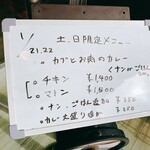 1/21.22 土.日限定メニュー
カブとお肉のカレー
くナンorごはん
チキン ¥1,400
マトン ¥1,500
ナン、ごはん追加 ¥350
カレー大盛り追加